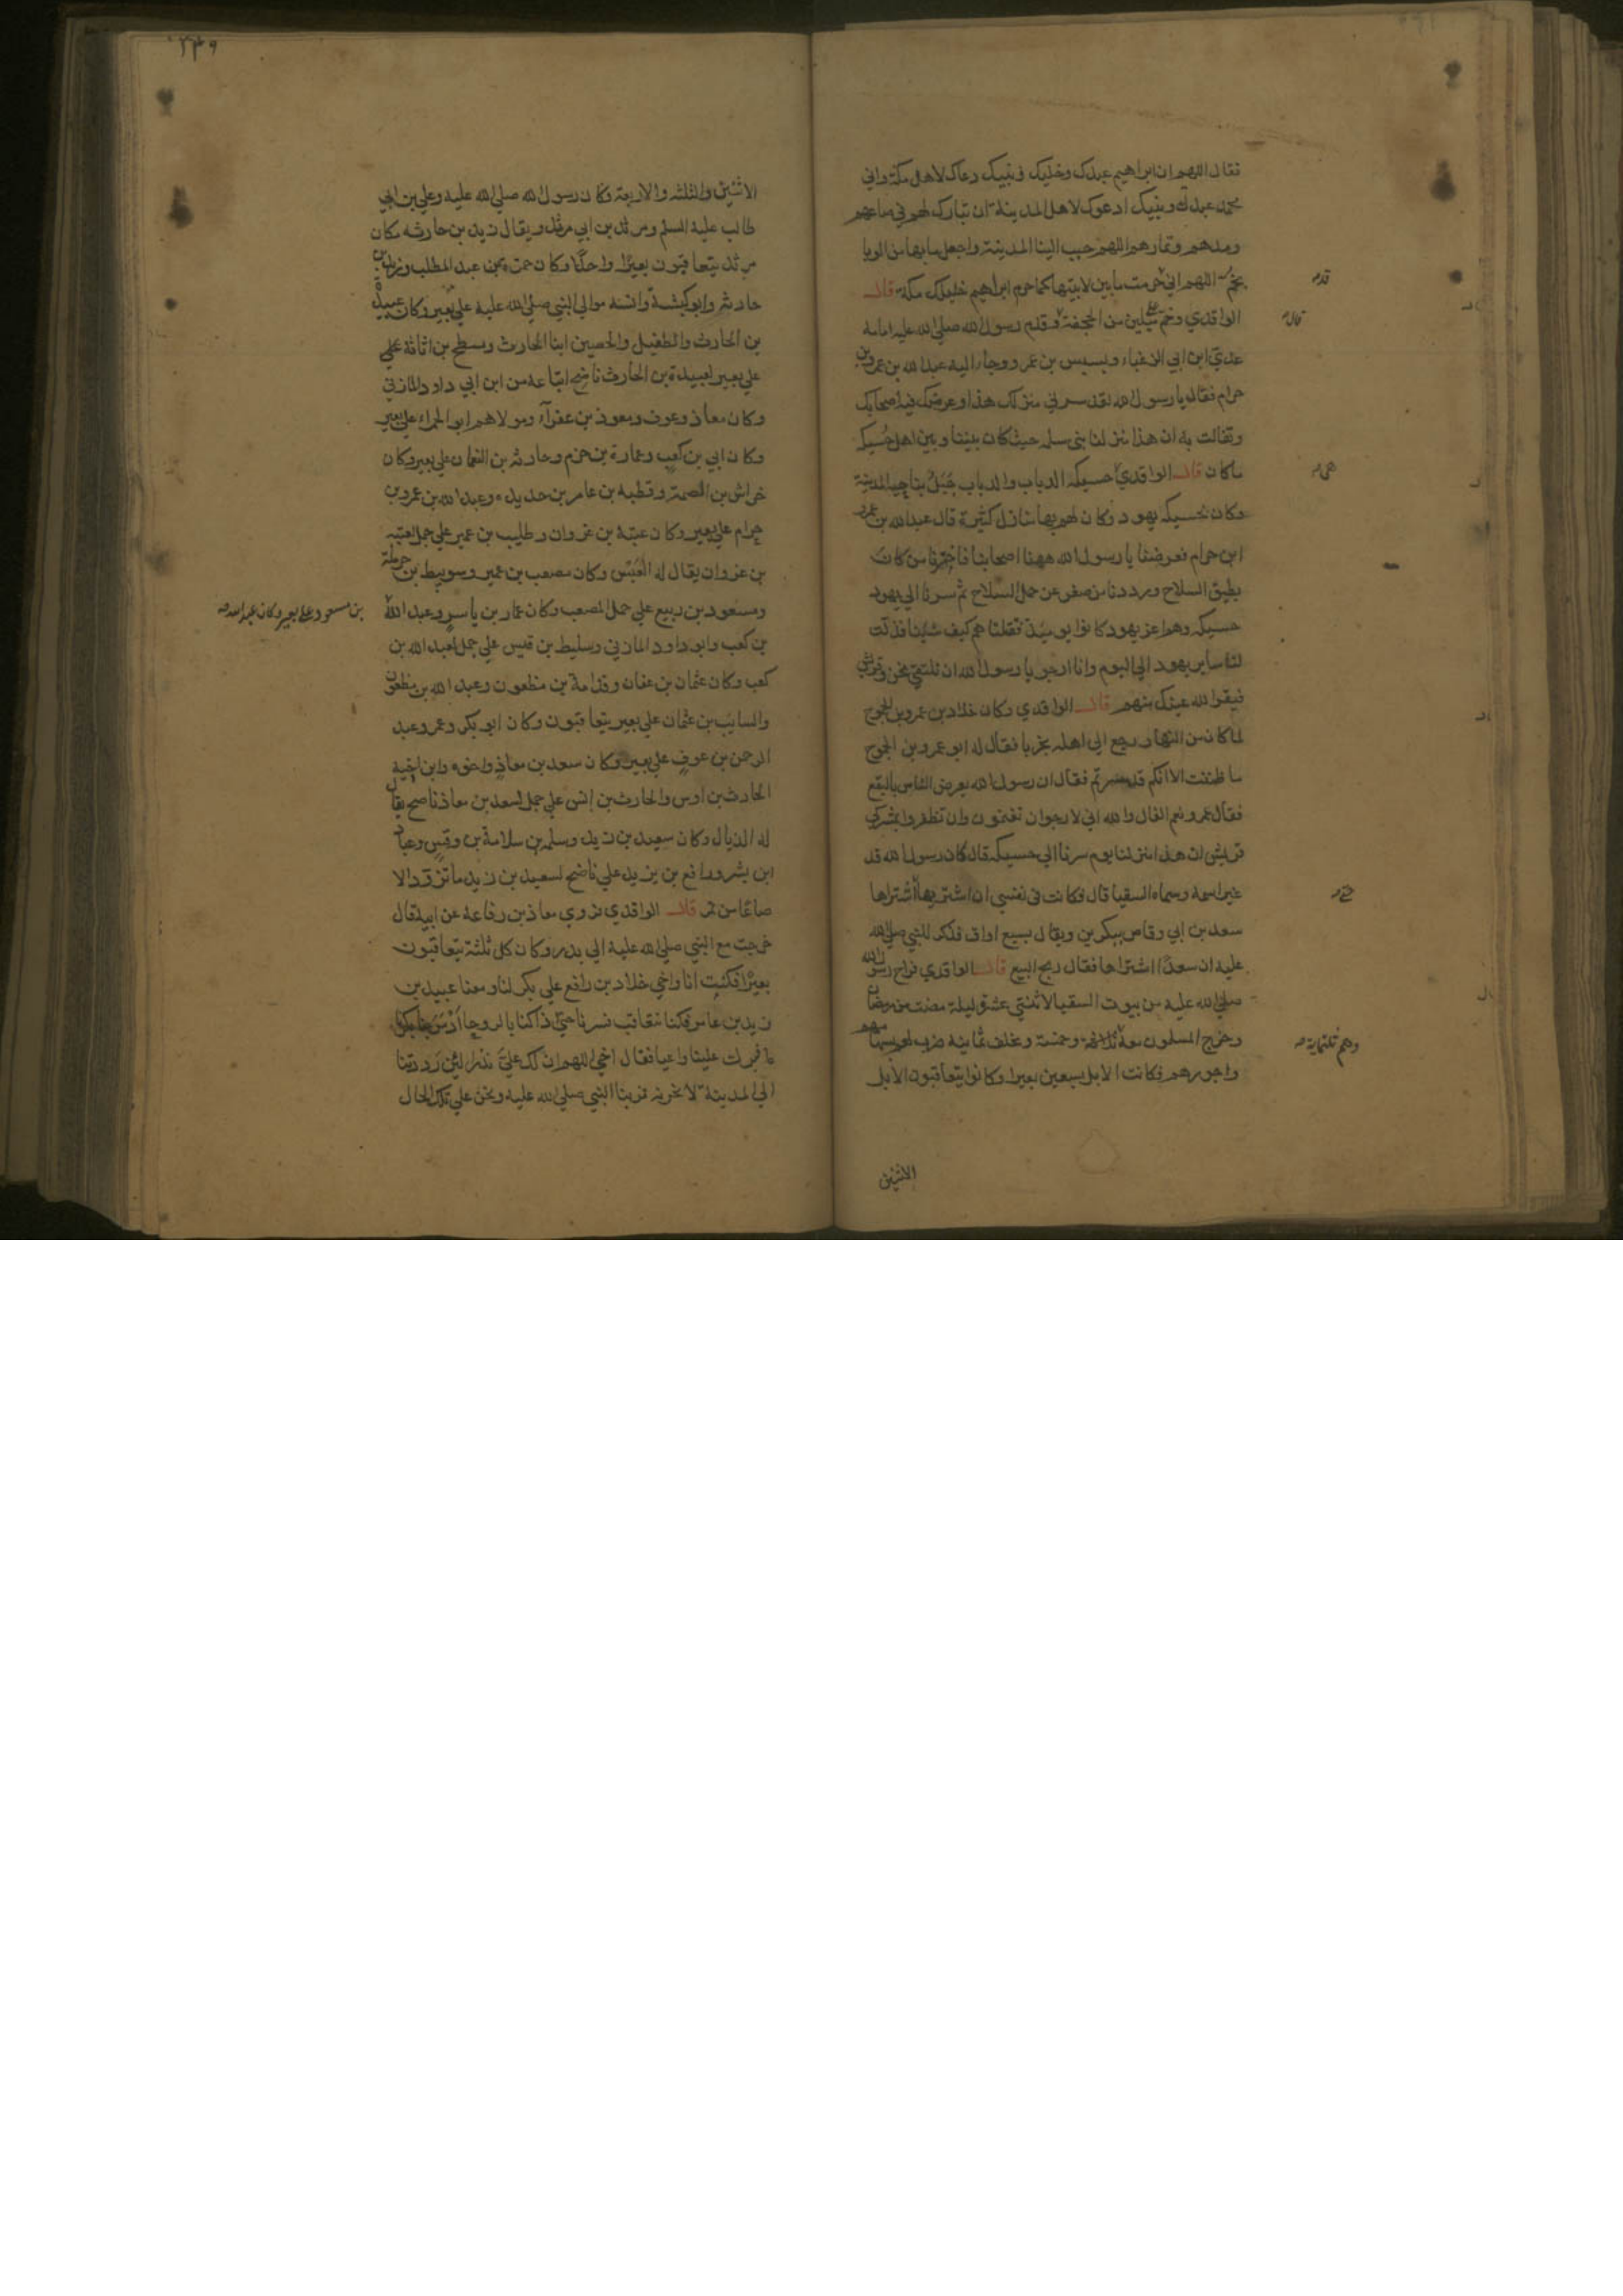 فقال اللهم ان ابراهيم عبدك وخليلك ونبيك دعاك لاهل مكة واني
محمد عبدك ونبيك ادعوك لاهل المدينة ان تبارك لهم في صاعهم
ومدهم وثمارهم اللهم حبب الينا المدينة واجعل ما بها من الوبا
بخم اللهم اني حرمت ما بين لابتيها كما حرم ابراهيم خليلك مكة قال
الواقدي وخم علي ميلين من الجحفة وقدم رسول الله صلي الله عليه امامه
عدي ابن ابي الزغباء وبسبس بن عمرو وجاء اليه عبد الله بن عمرو بن
حرام فقال يا رسول الله لقد سرني منزلك هذا وعرضك فيه اصحابك
وتفالت به ان هذا منزلنا بني سلمه حيث كان بيننا وبين اهل حسيكه
ما كان قال الواقدي حسيكه الذباب والذباب جبل بناحية المدينة
وكان بحسيكه يهود وكان لهم بها منازل كثيرة قال عبد الله بن عمرو
ابن حرام فعرضنا يا رسول الله ههنا اصحابنا فاجزنا من كان
يطيق السلاح ورددنا من صغر عن حمل السلاح ثم سرنا الي يهود
حسيكه وهم اعز يهود كانوا يوميذ فقتلناهم كيف شئنا فذلت
لنا ساير يهود الي اليوم وانا ارجو يا رسول الله ان نلتقي نحن وقريش
فيقر الله عينك منهم قال الواقدي وكان خلاد بن عمرو بن الجموح
لما كان من النهار رجع الي اهله بخربا فقال له ابو عمرو بن الجموح
ما ظننت الا انكم قد سرتم فقال ان رسول الله يعرض الناس بالبقع
فقال عمرو نعم الفال والله اني لارجو ان تغنموا وان تظفروا بمشركي
قريش ان هذا منزلنا يوم سرنا الي حسيكه قال كان رسول الله قد
غير اسمه وسماه السقيا قال فكانت في نفسي ان اشتريها اشتراها
سعد بن ابي وقاص ببكرين ويقال بسبع اواق فذكر للنبي صلي الله
عليه ان سعدا اشتراها فقال ربح البيع قال الواقدي فراح رسول الله
صلي الله عليه من بيوت السقيا لاثنتي عشرة ليلة مضت من رمضان
وخرج المسلمون معه ثلاثمه وخمسة وتخلف ثمانية ضرب لهم بسهامهم
واجورهم فكانت الابل سبعين بعيرا وكانوا يتعاقبون الابل
وهم ثلثماية
الاثنين
الاثنين والثلثه والاربعة وكان رسول الله صلي الله عليه وعلي بن ابي
طالب عليه السلم ومرثد بن ابي مرثد ويقال زيد بن حارثه مكان
مرثد يتعاقبون بعيرا واحدا وكان حمزة بن عبد المطلب وزيد بن
حارثه وابو كبشة وانسه موالي النبي صلي الله عليه علي بعير وكان عبيدة
بن الحارث والطفيل والحصين ابنا الحارث ومسطح بن اثاثة علي
علي بعير لعبيدة بن الحارث ناضح ابتاعه من ابن ابي داود المازني
وكان معاذ وعوف ومعوذ بن عفراء ومولاهم ابو الحمراء علي بعير
وكان ابي بن كعب وعمارة بن حزم وحارثه بن النعمان علي بعير وكان
خراش بن الصمة وقطبه بن عامر بن حديده وعبد الله بن عمرو بن
حرام علي بعير وكان عتبة بن غزوان وطليب بن عمير علي جمل لعتبه
بن غزوان يقال له العبس وكان مصعب بن عمير وسويبط بن حرملة
ومسعود بن ربيع علي جمل لمصعب وكان عمار بن ياسر وعبد الله
بن مسعود علي بعير وكان عبد الله
بن كعب وابو داود المازني وسليط بن قيس علي جمل لعبد الله بن
كعب وكان عثمان بن عفان وقدامة بن مظعون وعبد الله بن مظعون
والسايب بن عثمان علي بعير يتعاقبون وكان ابو بكر وعمر وعبد
الرحمن بن عوف علي بعير وكان سعد بن معاذ واخوه وابن اخيه
الحارث بن اوس والحارث بن انس علي جمل لسعد بن معاذ ناضح يقال
له الذيال وكان سعيد بن زيد وسلمه بن سلامة بن وقس وعباد
ابن بشر ورافع بن يزيد علي ناضح لسعيد بن زيد ما تزود الا
صاعا من تمر قال الواقدي فروي معاذ بن رفاعة عن ابيه قال
خرجت مع النبي صلي الله عليه الي بدر وكان كل ثلثة يتعاقبون
بعيرا فكنت انا واخي خلاد بن رافع علي بكر لنا ومعنا عبيد بن
زيد بن عامر فكنا نتعاقب فسرنا حتي اذا كنا بالروحا
علينا واعيا فقال اخي اللهم ان لك علي نذرا لئن رددتنا
الي المدينة لانحرنه فمر بنا النبي صلي الله عليه ونحن علي تلك الحال